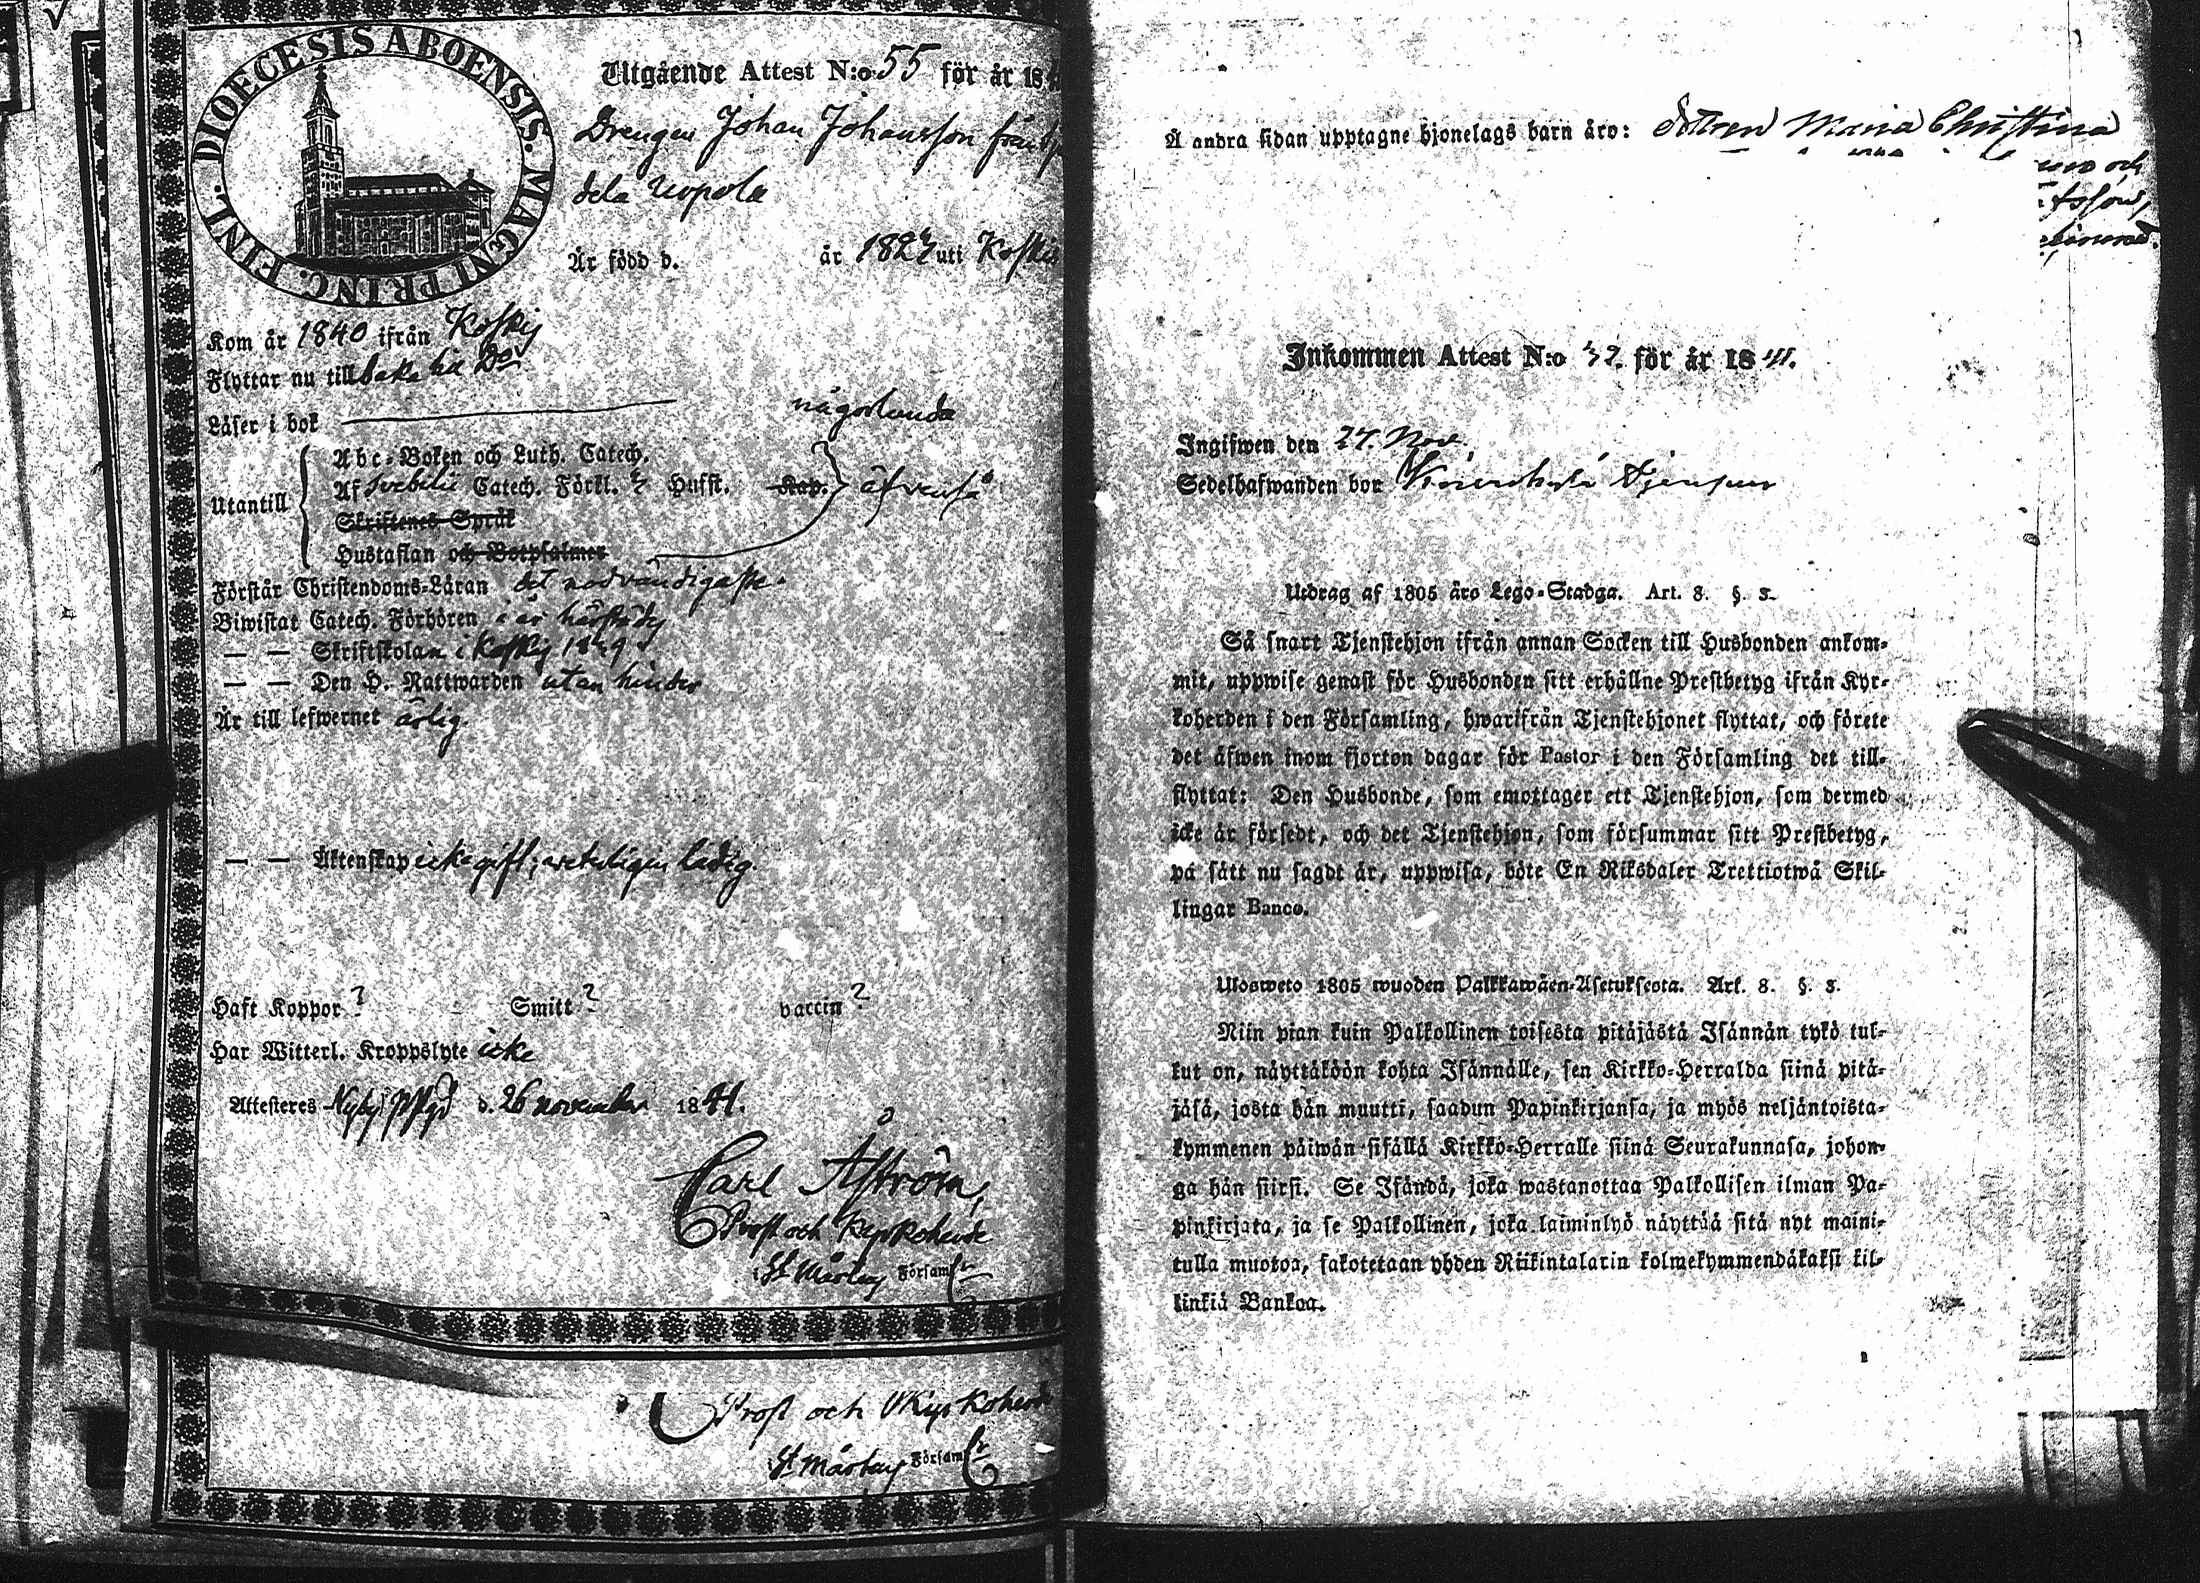 DIOECESIS ABOENSIS. MAGNI PRINC. FINL.
Utgående Attest N:o 55 för år 18
Drengen Johan Johansson från
dela Uopola
Är född d. år 182 uti Koskis
Kom år 1840 ifrån Koskis
Flyttar nu tillbaka till Do
Läser i bok någorlunda
Utantill
Abc-Boken och Luth. Catech.
Af Svebilii Catech. Förkl. Hufst. Kap. äfvenså
Skriftenes Språk
Hustaflan och Botpsalmer
Förstår Christendoms-Läran det nödvändigaste.
Biwistat Catech. Förhören i år härstädes
— — Skriftskolan i Koskis 18
— — Den H. Nattwarden utan hinder
Är till lefwernet ärlig.
— — Äktenskap icke gift; veterligen ledig.
Haft Koppor ? Smitt ? vaccin ?
Har Witterl. Kroppslyte icke
Attesteres Nyby Pgd d. 26 november 1841.
Carl Åström,
Prost och Kyrkoherde
i St Mårtens Församl.
Prost och Kyrkoherde
St Mårtens Församl.
Å andra sidan upptagne hjonelags barn äro: dottren Maria Christina
och
Inkommen Attest N:o 32. för år 1841.
Ingifwen den 27. Nov.
Sedelhafwanden bor
Utdrag af 1805 års Lego-Stadga. Art. 8. §. 3.
Så snart Tjenstehjon ifrån annan Socken till Husbonden ankom-
mit, uppwise genast för Husbonden sitt erhållne Prestbetyg ifrån Kyr-
koherden i den Församling, hwarifrån Tjenstehjonet flyttat, och förete
det äfwen inom fjorton dagar för Pastor i den Församling det till-
flyttat: Den Husbonde, som emottager ett Tjenstehjon, som dermed
icke är försedt, och det Tjenstehjon, som försummar sitt Prestbetyg,
på sätt nu sagdt är, uppwisa, böte En Riksdaler Trettiotwå Skil-
lingar Banco.
Ulosweto 1805 wuoden Palkkawäen-Asetuksesta. Art. 8. §. 3.
Niin pian kuin Palkollinen toisesta pitäjästä Isännän tykö tul-
lut on, näyttäköön kohta Isännälle, sen Kirkko-Herralda siinä pitä-
jäsä, josta hän muutti, saadun Papinkirjansa, ja myös neljäntoista-
kymmenen päiwän sisällä Kirkko-Herralle siinä Seurakunnasa, johon-
ga hän siirsi. Se Isändä, joka wastanottaa Palkollisen ilman Pa-
pinkirjata, ja se Palkollinen, joka laiminlyö näyttää sitä nyt maini-
tulla muotoa, sakotetaan yhden Riikintalarin kolmekymmendäkaksi kil-
linkiä Bankoa.